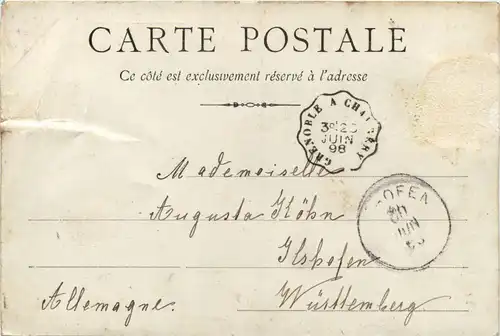 CARTE POSTALE
Ce côté est exclusivement réservé à l'adresse
GRENOBLE A CHAMBÉRY
3º 25
JUIN
98
Mademoiselle
Augusta Köhn
Ilshofen
Württemberg.
Allemagne.